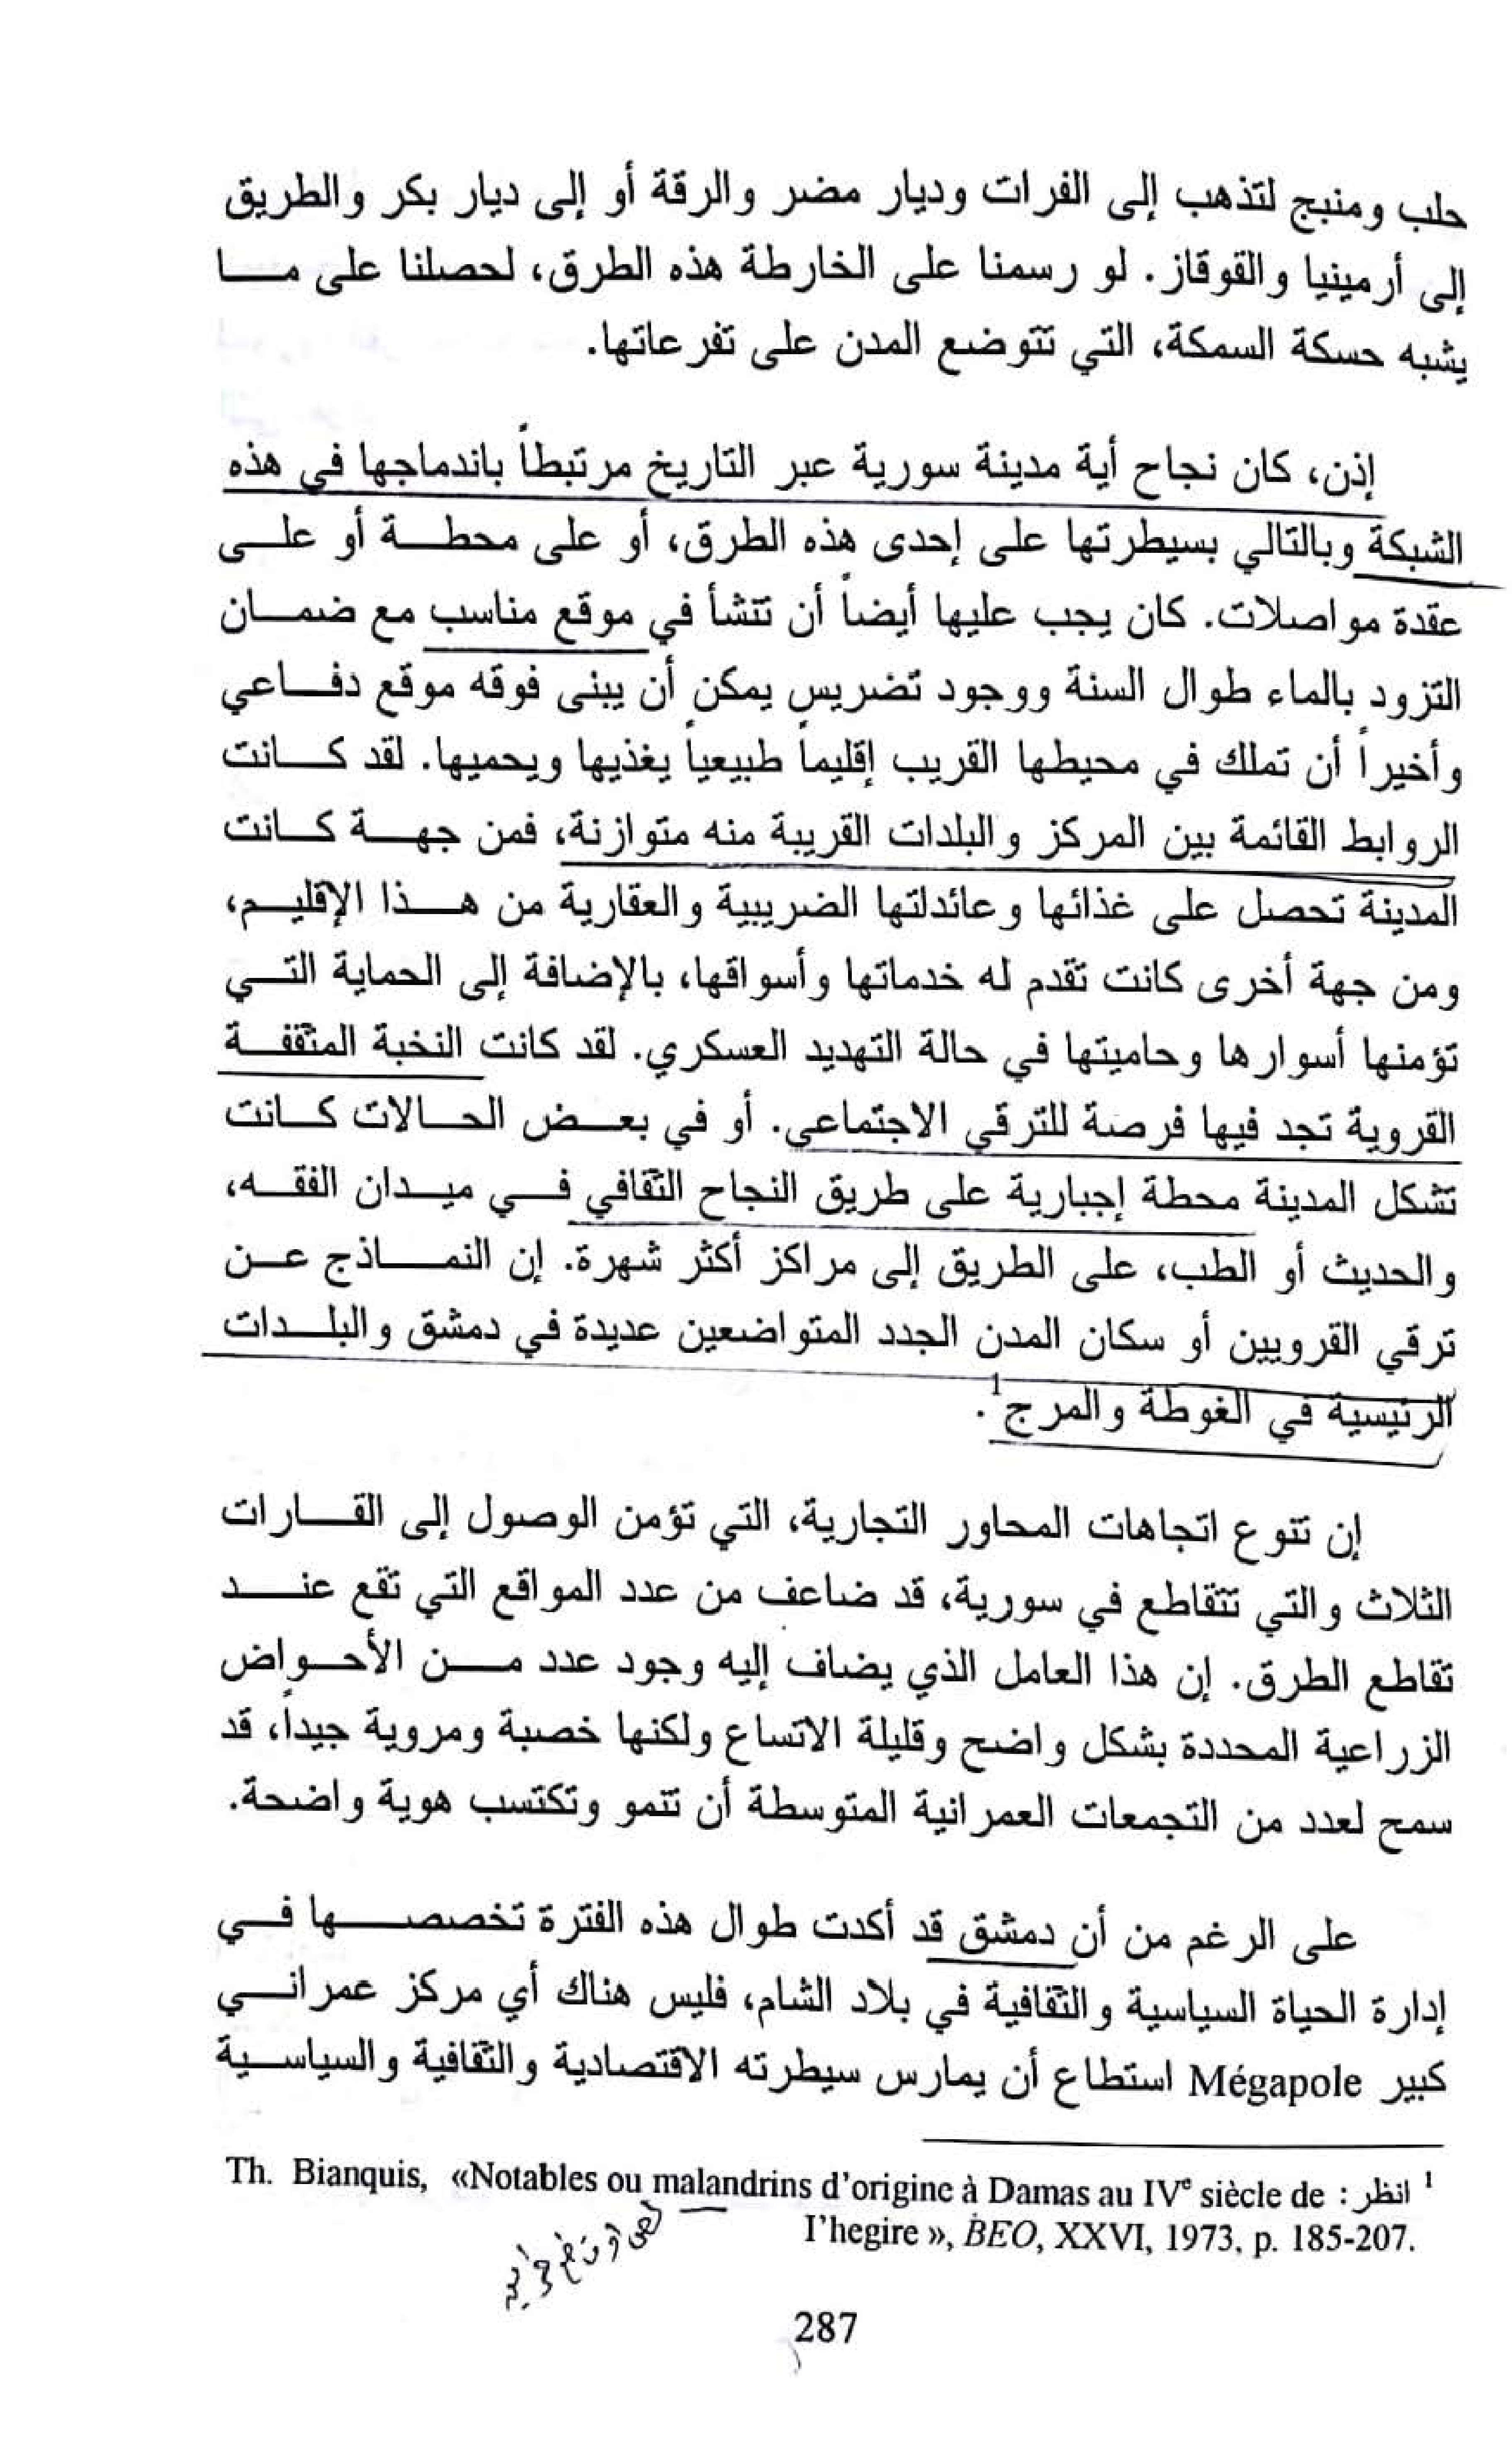 حلب ومنبج لتذهب إلى الفرات وديار مضر والرقة أو إلى ديار بكر والطريق
إلى أرمينيا والقوقاز. لو رسمنا على الخارطة هذه الطرق، لحصلنا على ما
يشبه حسكة السمكة، التي تتوضع المدن على تفرعاتها.
إذن، كان نجاح أية مدينة سورية عبر التاريخ مرتبطاً باندماجها في هذه
الشبكة وبالتالي بسيطرتها على إحدى هذه الطرق، أو على محطة أو على
عقدة مواصلات. كان يجب عليها أيضاً أن تنشأ في موقع مناسب مع ضمان
التزود بالماء طوال السنة ووجود تضريس يمكن أن يبنى فوقه موقع دفاعي
وأخيراً أن تملك في محيطها القريب إقليماً طبيعياً يغذيها ويحميها. لقد كانت
الروابط القائمة بين المركز والبلدات القريبة منه متوازنة، فمن جهة كانت
المدينة تحصل على غذائها وعائدلتها الضريبية والعقارية من هذا الإقليم،
ومن جهة أخرى كانت تقدم له خدماتها وأسواقها، بالإضافة إلى الحماية التي
تؤمنها أسوارها وحاميتها في حالة التهديد العسكري. لقد كانت النخبة المثقفة
القروية تجد فيها فرصة للترقي الاجتماعي. أو في بعض الحالات كانت
تشكل المدينة محطة إجبارية على طريق النجاح الثقافي في ميدان الفقه،
والحديث أو الطب، على الطريق إلى مراكز أكثر شهرة. إن النماذج عن
ترقي القرويين أو سكان المدن الجدد المتواضعين عديدة في دمشق والبلدات
الرئيسية في الغوطة والمرج¹.
إن تنوع اتجاهات المحاور التجارية، التي تؤمن الوصول إلى القارات
الثلاث والتي تتقاطع في سورية، قد ضاعف من عدد المواقع التي تقع عند
تقاطع الطرق. إن هذا العامل الذي يضاف إليه وجود عدد من الأحواض
الزراعية المحددة بشكل واضح وقليلة الاتساع ولكنها خصبة ومروية جيداً، قد
سمح لعدد من التجمعات العمرانية المتوسطة أن تنمو وتكتسب هوية واضحة.
على الرغم من أن دمشق قد أكدت طوال هذه الفترة تخصصها في
إدارة الحياة السياسية والثقافية في بلاد الشام، فليس هناك أي مركز عمراني
كبير Mégapole استطاع أن يمارس سيطرته الاقتصادية والثقافية والسياسية
¹ انظر : Th. Bianquis, «Notables ou malandrins d'origine à Damas au IVᵉ siècle de
l'hegire », BEO, XXVI, 1973, p. 185-207.
287